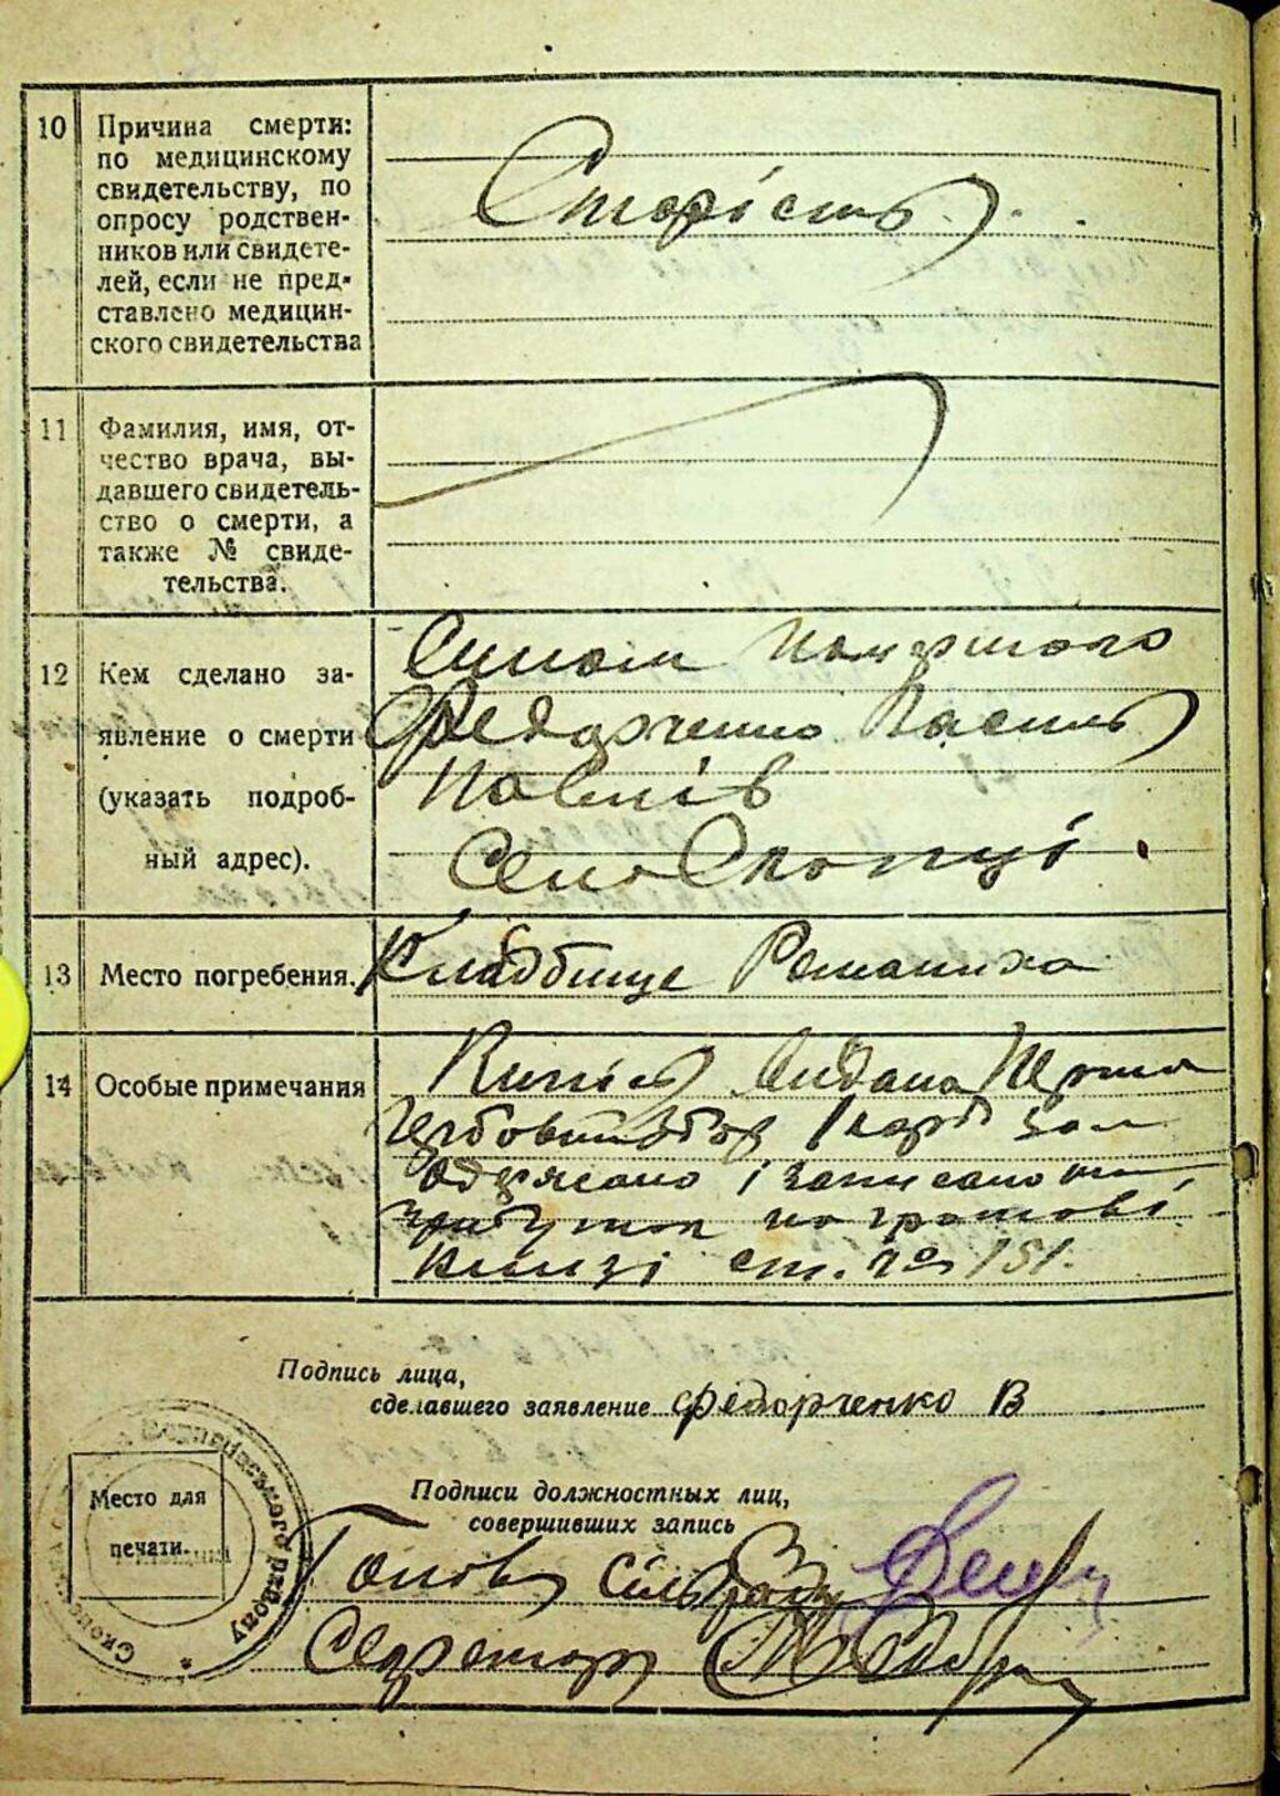 10 Причина смерти:
по медицинскому
свидетельству, по
опросу родствен-
ников или свидете-
лей, если не пред-
ставлено медицин-
ского свидетельства
Старість
11 Фамилия, имя, от-
чество врача, вы-
давшего свидетель-
ство о смерти, а
также № свиде-
тельства.
12 Кем сделано за-
явление о смерти
(указать подроб-
ный адрес).
Сином Помершого
Федорченко Василь
Павлів
Село Скопці.
13 Место погребения.
Кладбище
14 Особые примечания
Видана
1 карб
одржано і записано на
прибуток по грошові
книзі ст. № 151.
Подпись лица,
сделавшего заявление Федорченко В
Подписи должностных лиц,
совершивших запись
Место для
печати.
района
Голов сільради
Секретар